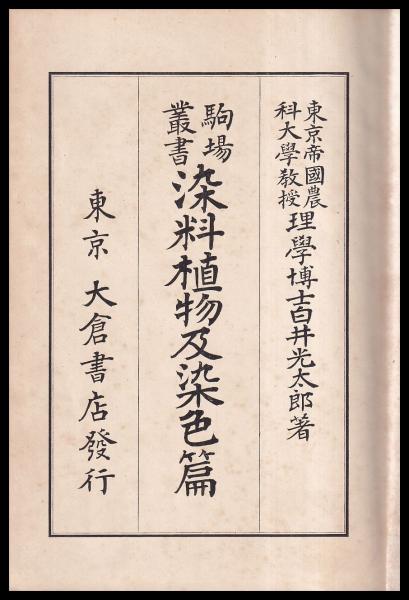 東京帝國農
科大學教授
理學博士白井光太郎著
駒場
叢書
染料植物及染色篇
東京 大倉書店發行